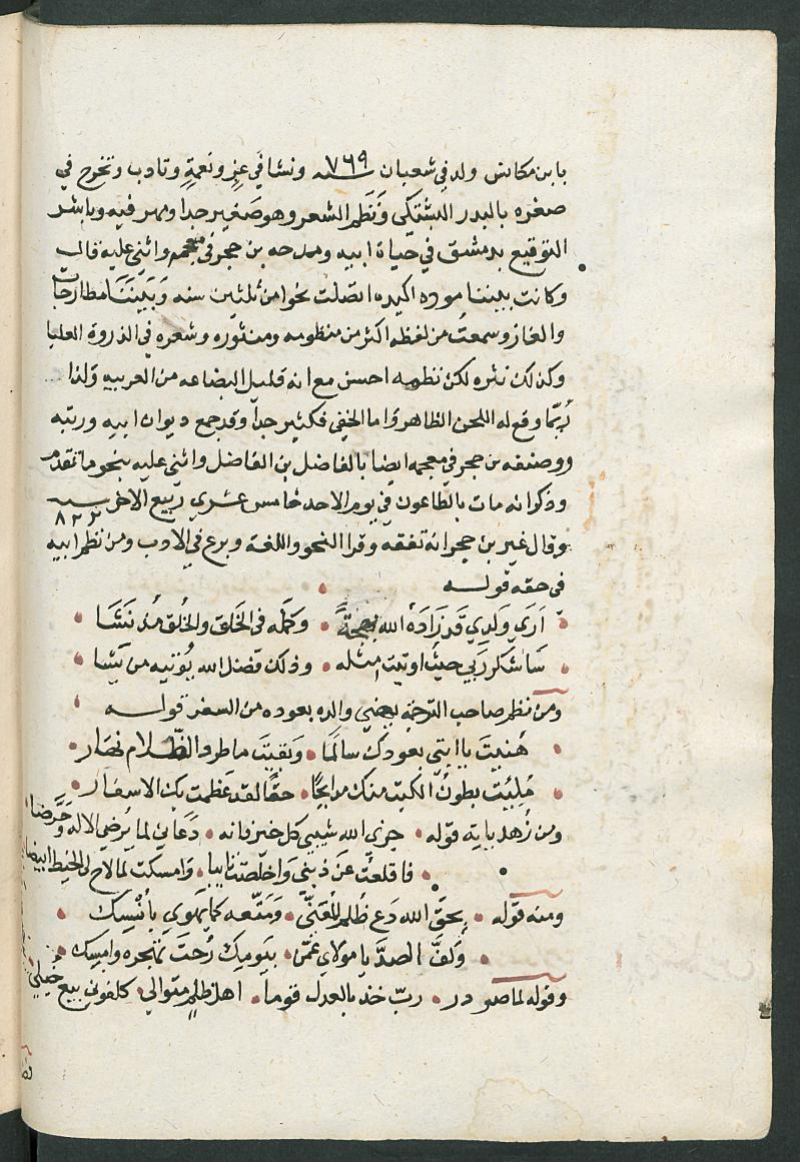 بابن مكانس ولد في شعبان سنه ٧٦٩ ونشا في عزٍ ونعمةٍ وتادب وتخرج في
صغره بالبدر البشتكي ونَظَم الشعر وهو صَغير جدا ومهر فيه وباشر
التوقيع بدمشق في حياة ابيه ومدحه بن حجر في معجمه واثني عليه قال
وكانت بيننا موده اكيده اتصلت نحوا من ثلثين سنه وبَينَنَا مطارحات
والغاز وسمعتُ من لفظه اكثر من منظومه ومنثوره وشعره في الذروة العليا
وكذلك نثره لكن نظمه احسن مع انه قليل البضاعه من العربيه ولذا
رُبَّما وقع له اللحن الظاهر واما الخفي فكثير جدا وقد جمع ديوان ابيه ورتبه
ووصفه بن حجر في معجمه ايضا بالفاضل بن الفاضل واثني عليه بنحو ما تقدم
وذكر انه مات بالطاعون في يوم الاحد خامس عشري ربيع الاخر سنه ٨٢٢
وقال غير بن حجر انه تفقه وقرا النحو واللغة وبرع في الادب ومن نظم ابيه
في حقه قوله
اري ولدي قد زاده الله بهجةً وكمّله في الخَلق والخُلق مُذ نَشَا
سَاشكر ربي حيثُ اوتيت مثله وذلك فضل الله يُؤتيه من يَشا
ومن نظم صاحب الترجمة يهني والده بعوده من السفر قوله
هُنيتَ يا ابتي بعودك سالمًا وبَقيتَ ما طرد الظّلام نهار
مُليت بطونُ الكتب منك مدايحًا حقًا لقد عَظمت بك الاسفار
ومن زُهدياته قوله جزي الله شيبي كل خير فانه دَعاني لما يُرضي الاله وحَرَّضا
فاقلعتُ عن ذنبي واخلَصتُ تايبا وامسكت لما لاح لي الخيط ابيضا
ومنه قوله بحقّ الله دَع ظُلم المُعَنّي ومَتّعه كما يهوي بأنسك
وكفّ الصدّ يا مولاي عمّن بيومك رُحتَ تهجره وامسك
وقوله لما صودر ربّ خذ بالعدل قوما اهل ظلمٍ متوالي كلفوني بيع خَيلي